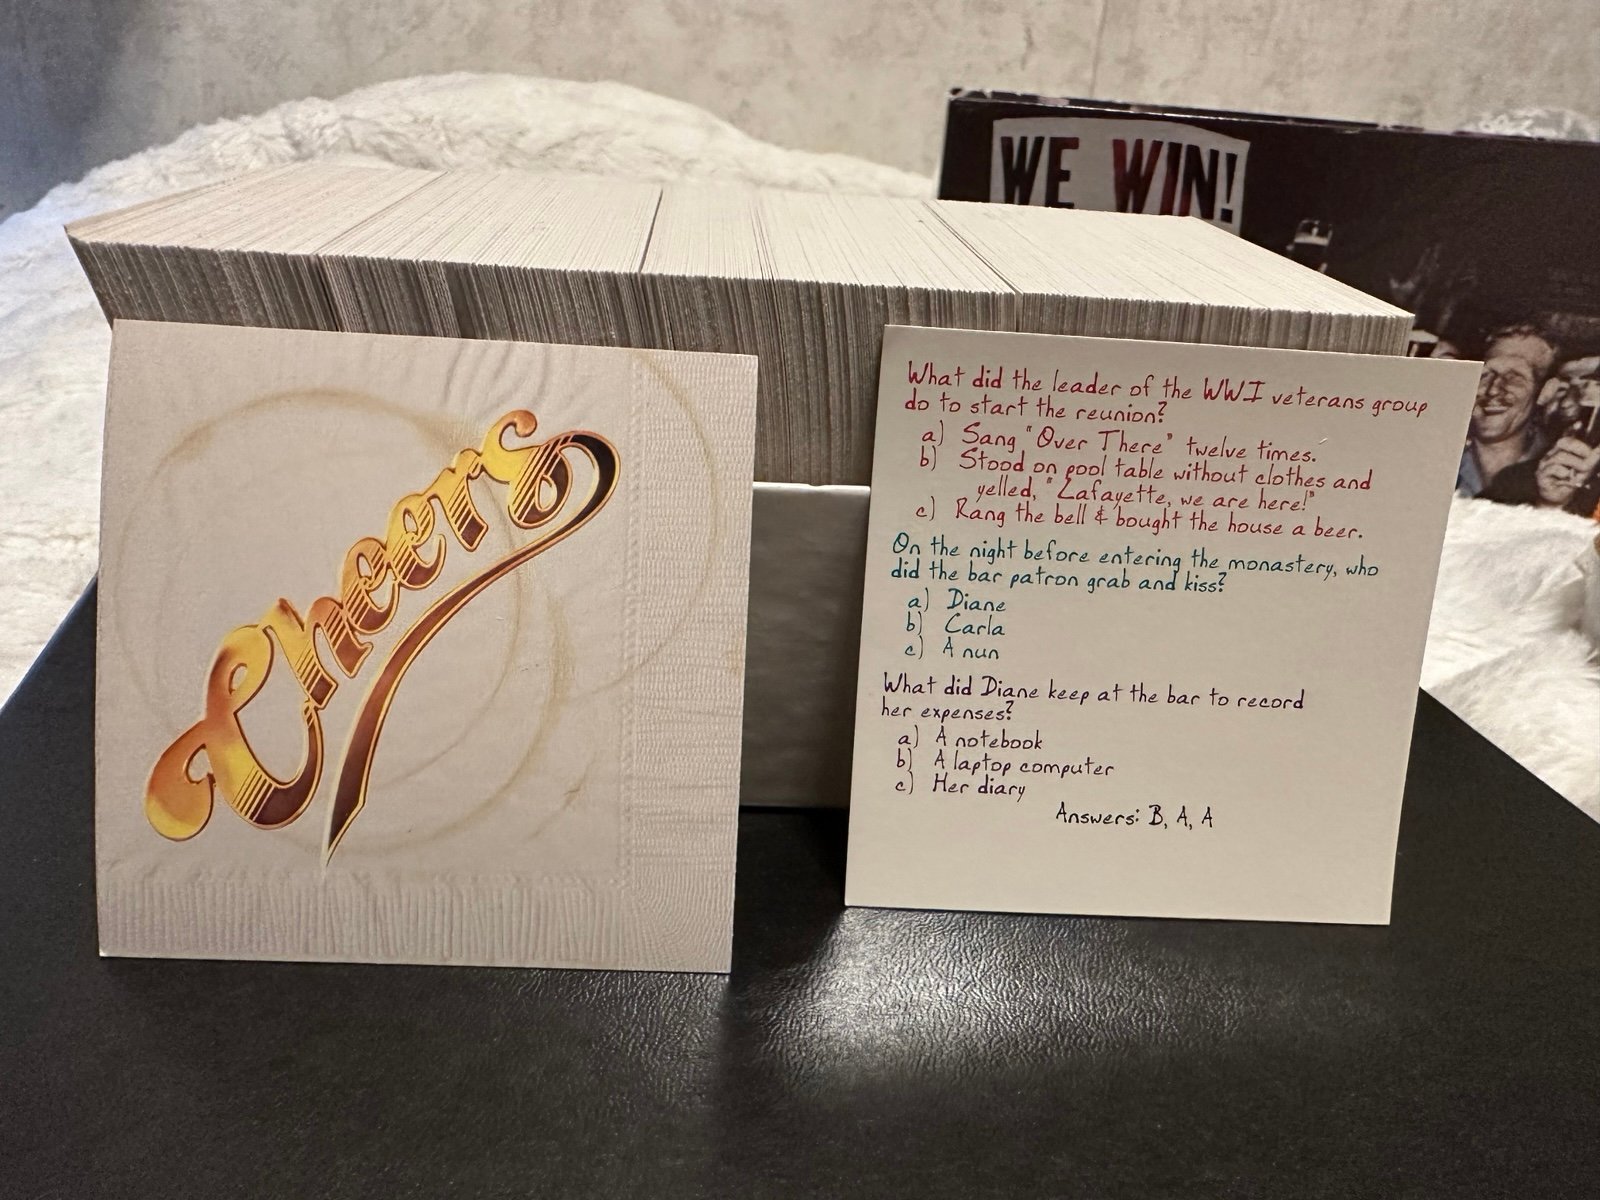 WE WIN!
Cheers
What did the leader of the WWI veterans group
do to start the reunion?
a) Sang "Over There" twelve times.
b) Stood on pool table without clothes and
yelled, "Lafayette, we are here!"
c) Rang the bell & bought the house a beer.
On the night before entering the monastery, who
did the bar patron grab and kiss?
a) Diane
b) Carla
c) A nun
What did Diane keep at the bar to record
her expenses?
a) A notebook
b) A laptop computer
c) Her diary
Answers: B, A, A